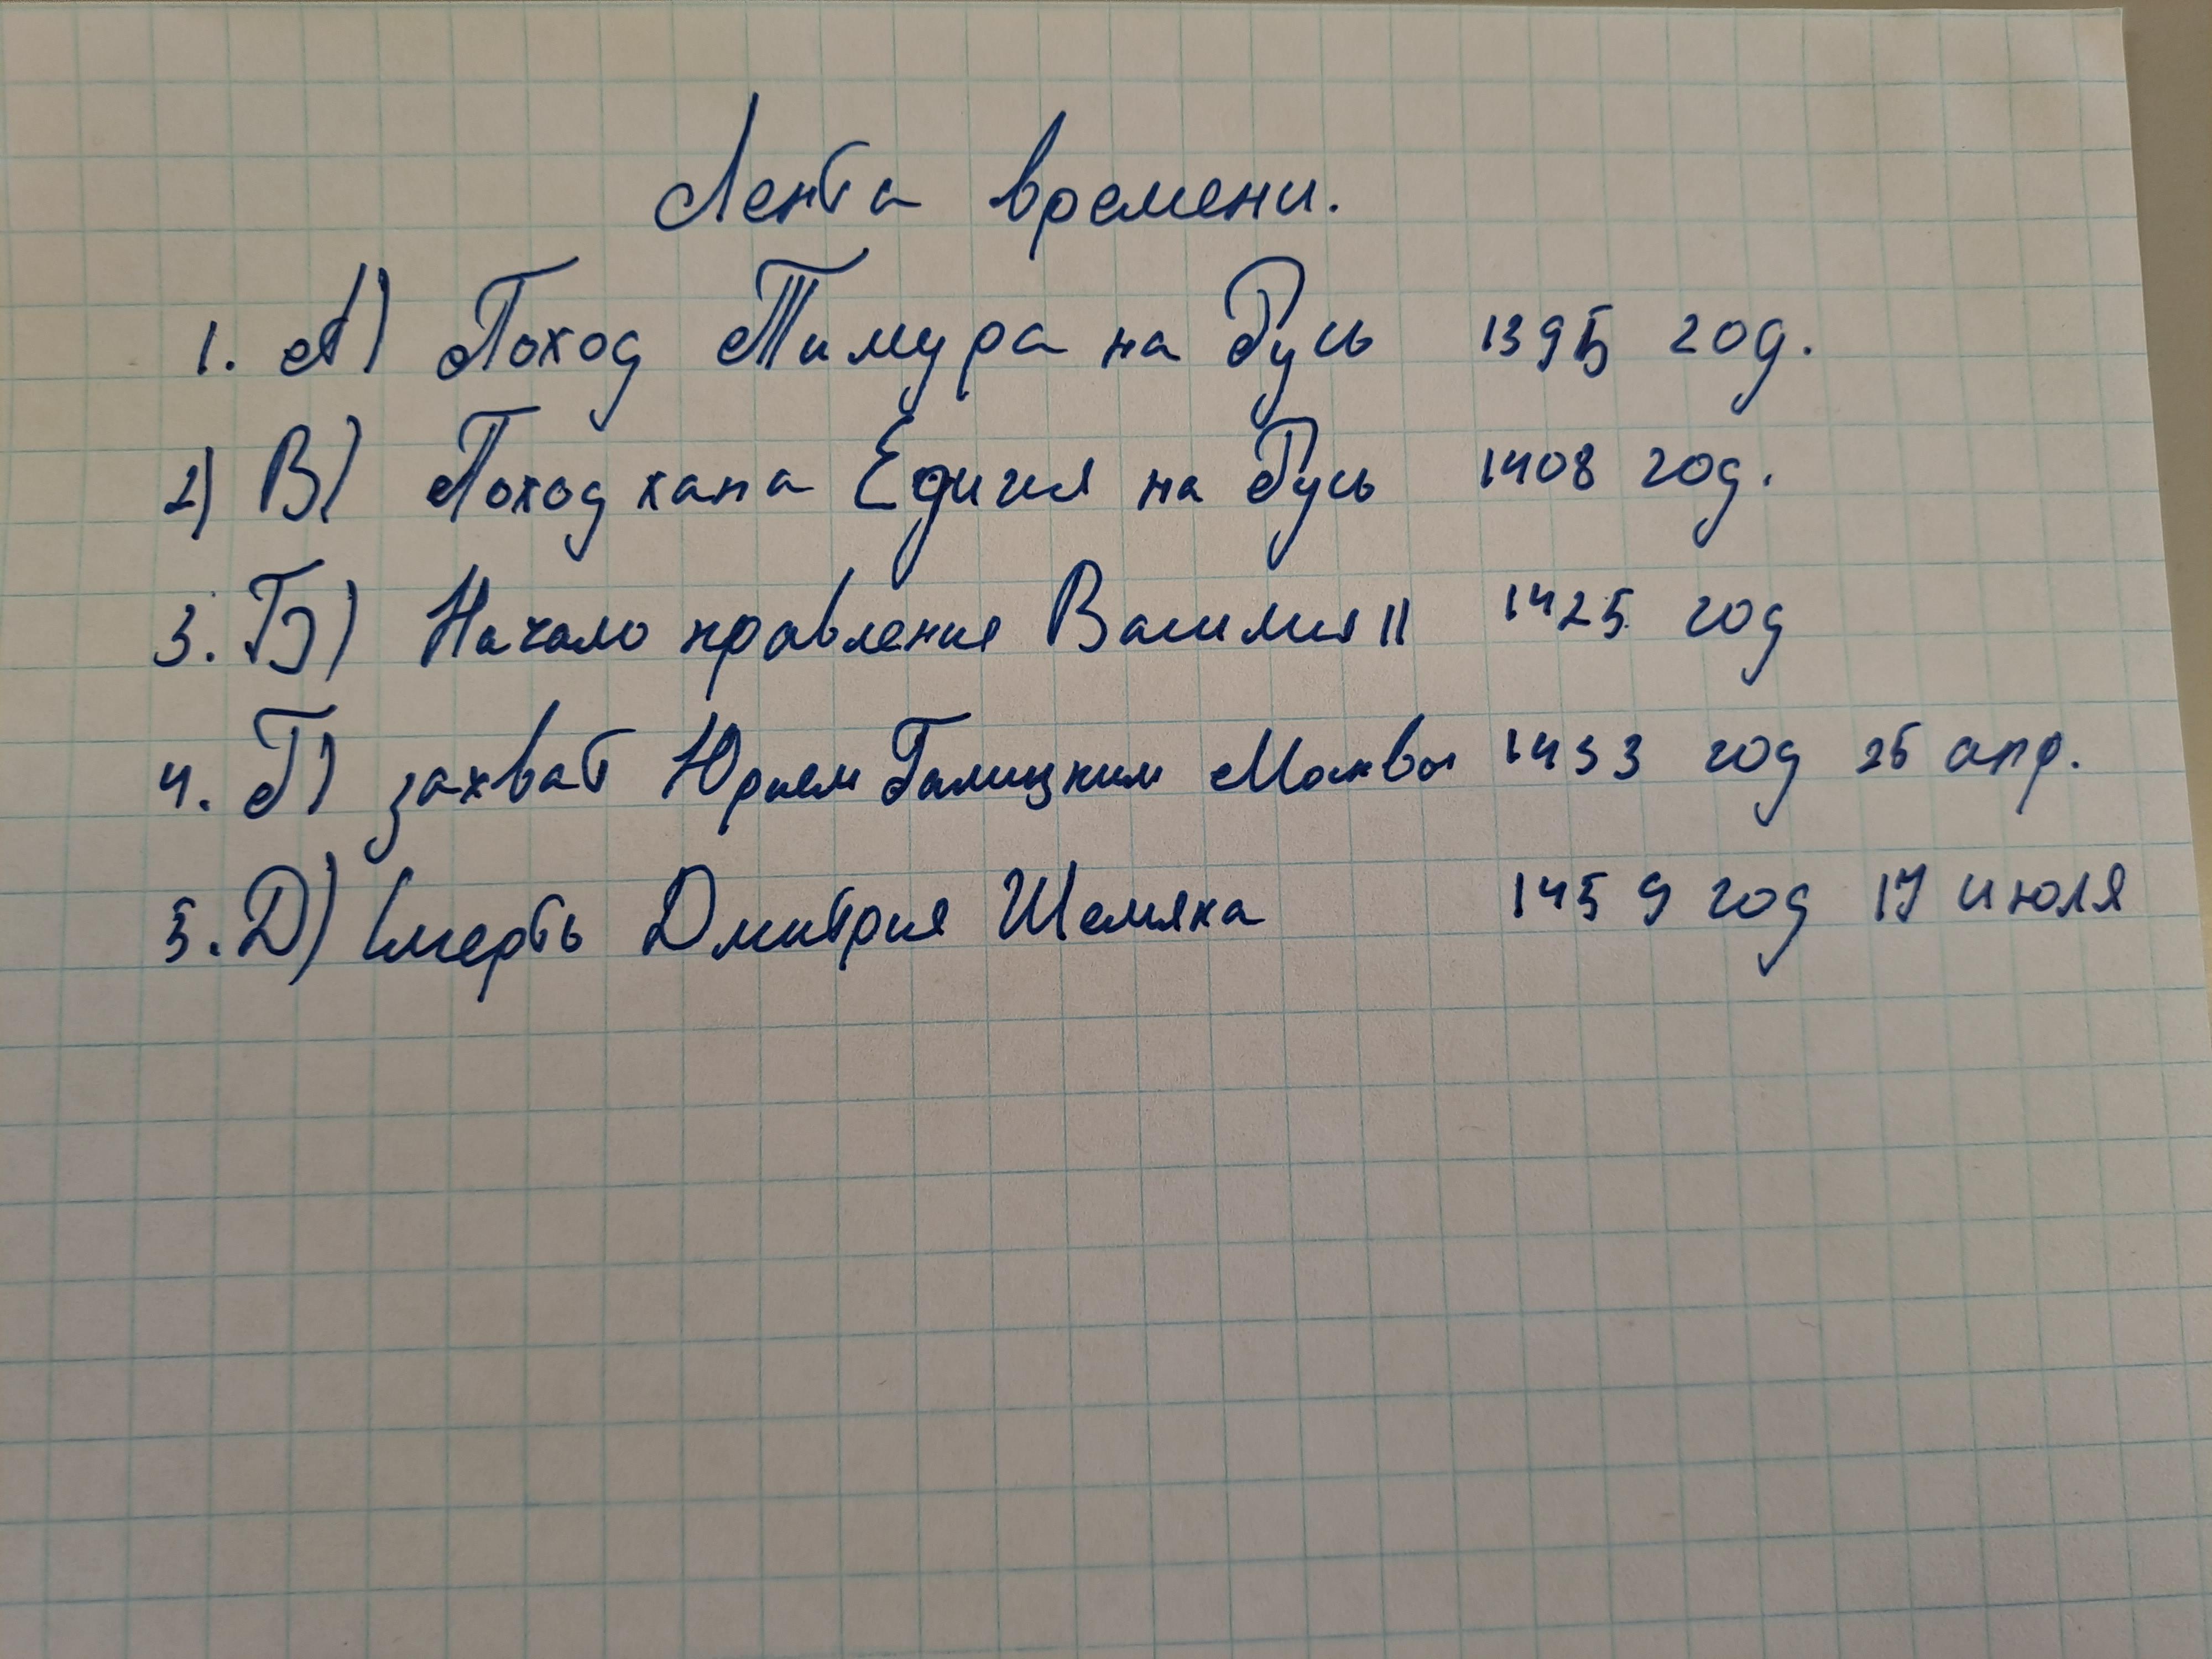 Лента времени.
1. А) Поход Тимура на Русь 1395 год.
2) В) Поход хана Едигея на Русь 1408 год.
3. Б) Начало правления Василия II 1425 год
4. Г) захват Юрием Галицким Москвы 1433 год 25 апр.
5. Д) Смерть Дмитрия Шемяка 1459 год 17 июля